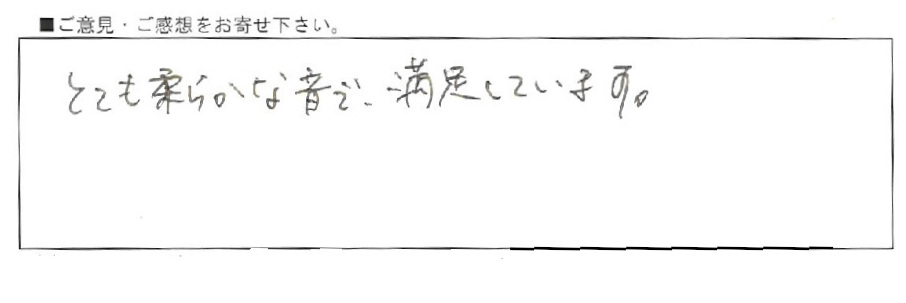 ■ご意見・ご感想をお寄せ下さい。
とても柔らかな音で、満足しています。